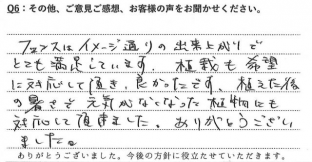 Q6：その他、ご意見ご感想、お客様の声をお聞かせください。
フェンスはイメージ通りの出来上がりで
とても満足しています。植栽も希望
に対応して頂き、良かったです。植えた後
の暑さで元気がなくなった植物にも
対応して頂きました。ありがとうござい
ました。
ありがとうございました。今後の方針に役立たせていただきます。